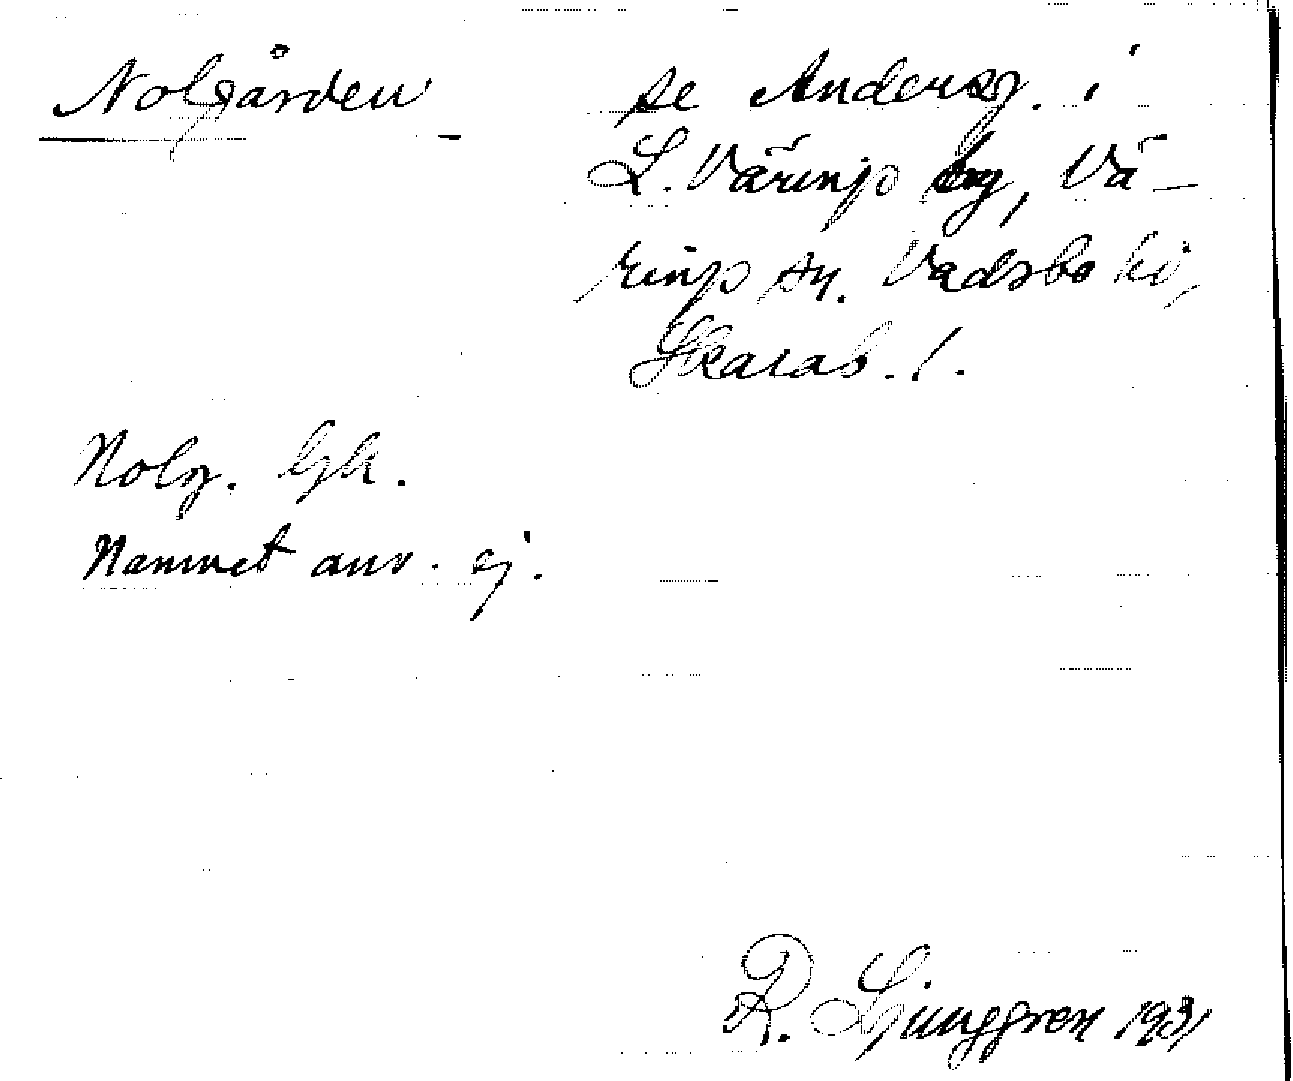 Nolgården
se Andersg. i
L. Väring by, Vä-
ring sn. Vadsbo hd,
Skarab. l.
Nolg. Gk.
Namnet anv. ej.
R. Ljunggren 1931